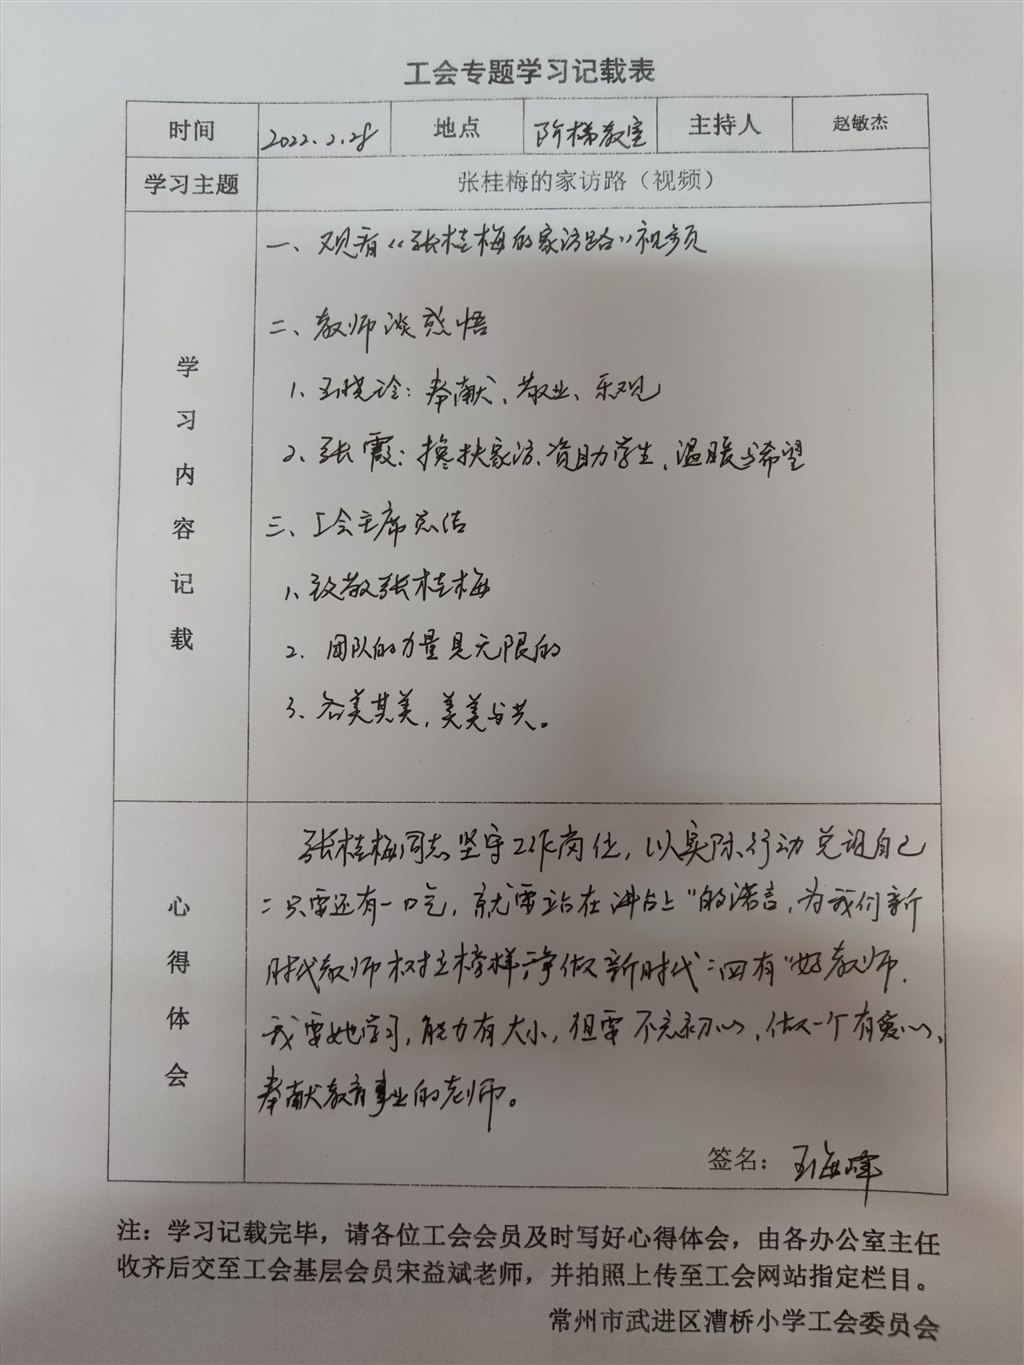 工会专题学习记载表
时间 2022.2.28 地点 阶梯教室 主持人 赵敏杰
学习主题 张桂梅的家访路（视频）
学习内容记载
一、观看“张桂梅的家访路”视频
二、教师谈感悟
1、王晓玲：奉献、敬业、乐观
2、张霞：搀扶家访、资助学生、温暖与希望
三、工会主席总结
1、致敬张桂梅
2、团队的力量是无限的
3、各美其美，美美与共。
心得体会
张桂梅同志坚守工作岗位，以实际行动兑现自己
“只要还有一口气，就要站在讲台上”的诺言，为我们新
时代教师树立榜样，争做新时代“四有”好教师．
我要她学习，能力有大小，但要不忘初心，做一个有爱心、
奉献教育事业的老师。
签名：王海峰
注：学习记载完毕，请各位工会会员及时写好心得体会，由各办公室主任
收齐后交至工会基层会员宋益斌老师，并拍照上传至工会网站指定栏目。
常州市武进区漕桥小学工会委员会